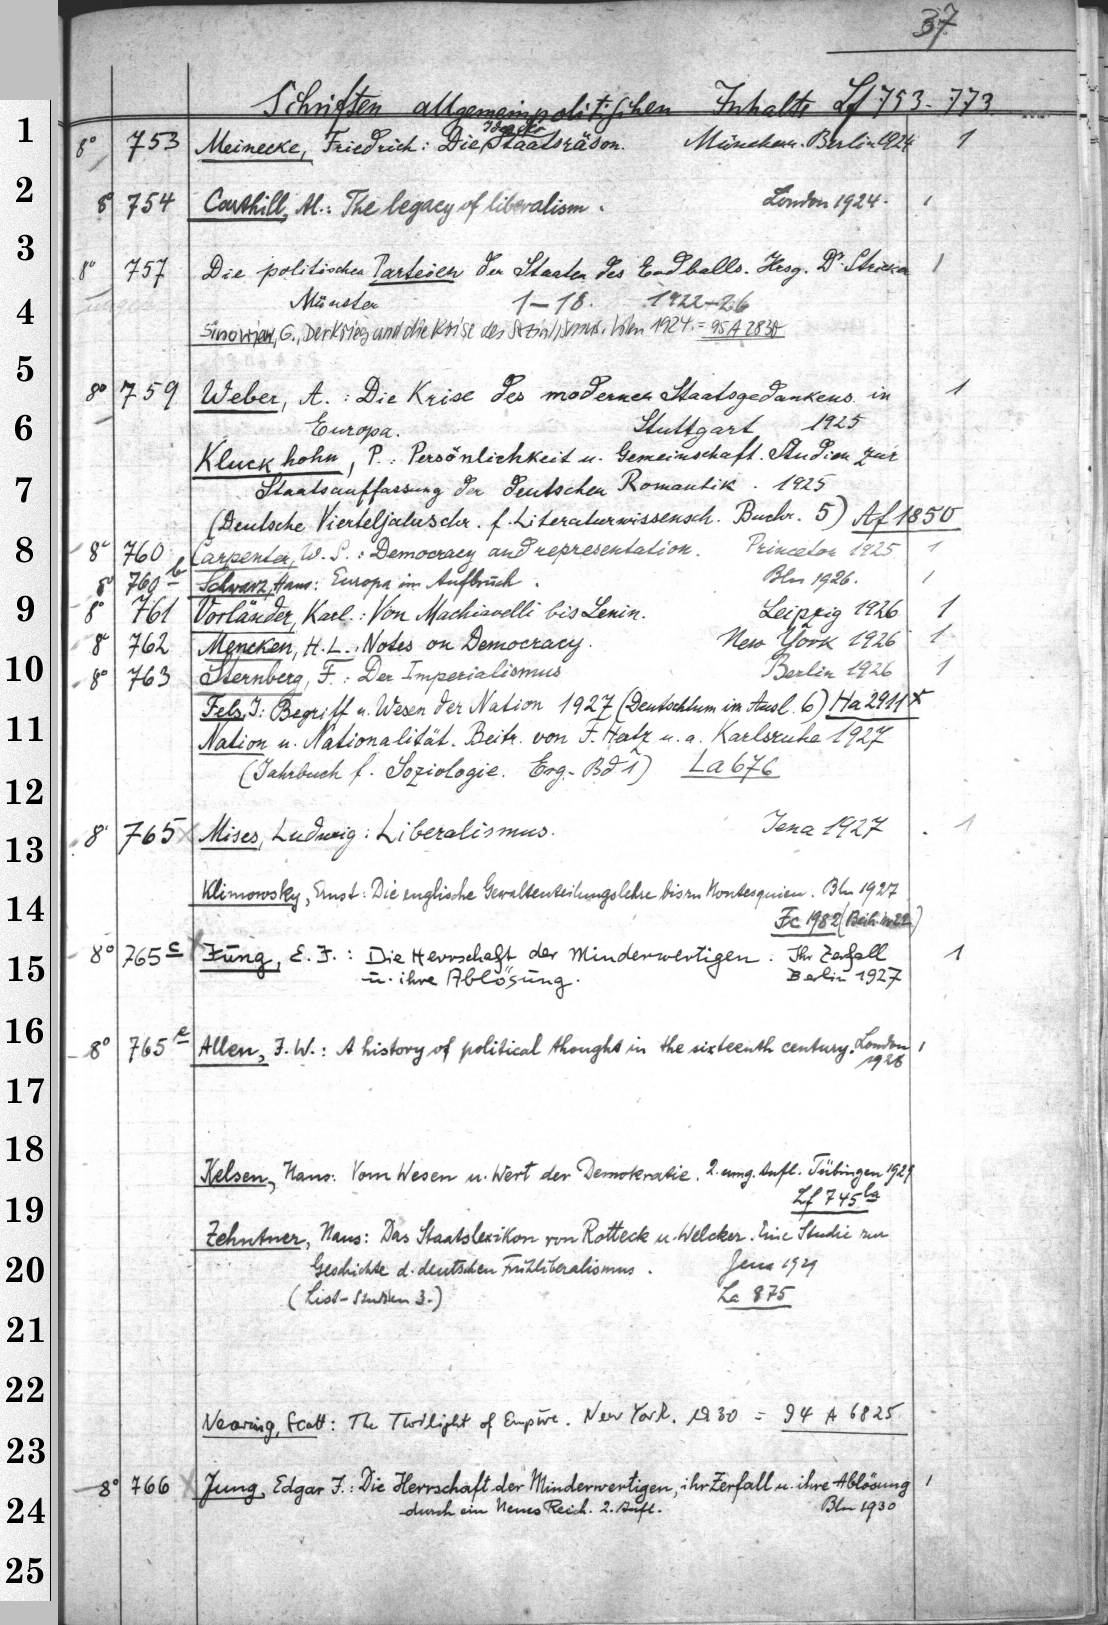 37
Schriften allgemeinpolitischen Inhalts Lf 753-773
1
8° 753 Meinecke, Friedrich: Die Idee der Staatsräson. München. Berlin 1924 1
2
8° 754 Carthill, Al.: The legacy of liberalism. London 1924. 1
3
8° 757 Die politischen Parteien der Staaten des Erdballs. Hrsg. Dr. 1
4
Münster 1-18. 1922-26
Sinowjew, G., Der Krieg und die Krise des Sozialismus. Wien 1924. = 95 A 2830
5
8° 759 Weber, A.: Die Krise des modernen Staatsgedankens in 1
6
Europa. Stuttgart 1925
Kluckhohn, P.: Persönlichkeit u. Gemeinschaft. Studien zur
7
Staatsauffassung der deutschen Romantik. 1925
(Deutsche Vierteljahrschr. f. Literaturwissensch. Buchr. 5) Af 1850
8
8° 760 Carpenter, W. S.: Democracy and representation. Princeton 1925 1
8° 760 b Schwarz, Hans: Europa im Aufbruch. Bln 1926. 1
9
8° 761 Vorländer, Karl.: Von Machiavelli bis Lenin. Leipzig 1926 1
8° 762 Mencken, H. L.: Notes on Democracy. New York 1926 1
10
8° 763 Sternberg, F.: Der Imperialismus Berlin 1926 1
Fels, J: Begriff u. Wesen der Nation 1927 (Deutschtum im Ausl. 6) Ha 2911 x
11
Nation u. Nationalität. Beitr. von F. Hertz u. a. Karlsruhe 1927
(Jahrbuch f. Soziologie. Erg.-Bd 1) La 676
12
8° 765 x Mises, Ludwig: Liberalismus. Jena 1927 . 1
13
Klimowsky, Ernst: Die englische Gewaltenteilungslehre bis zu Montesquieu. Bln 1927
14
Fc 1982 (Beih. 22)
8° 765 c x Jung, E. J.: Die Herrschaft der Minderwertigen. Ihr Zerfall 1
15
u. ihre Ablösung. Berlin 1927
16
8° 765 e Allen, J. W.: A history of political thought in the sixteenth century. London 1
1928
17
18
Kelsen, Hans: Vom Wesen u. Wert der Demokratie. 2. umg. Aufl. Tübingen 1929
19
Lf 745 ba
Zehntner, Hans: Das Staatslexikon von Rotteck u. Welcker. Eine Studie zur
20
Geschichte d. deutschen Frühliberalismus. Jena 1929
(List-Studien 3.) La 875
21
22
Nearing, Scott: The Twilight of Empire. New York. 1930 = 94 A 6825
23
8° 766 x Jung, Edgar J.: Die Herrschaft der Minderwertigen, ihr Zerfall u. ihre Ablösung 1
24
durch ein Neues Reich. 2. Aufl. Bln 1930
25